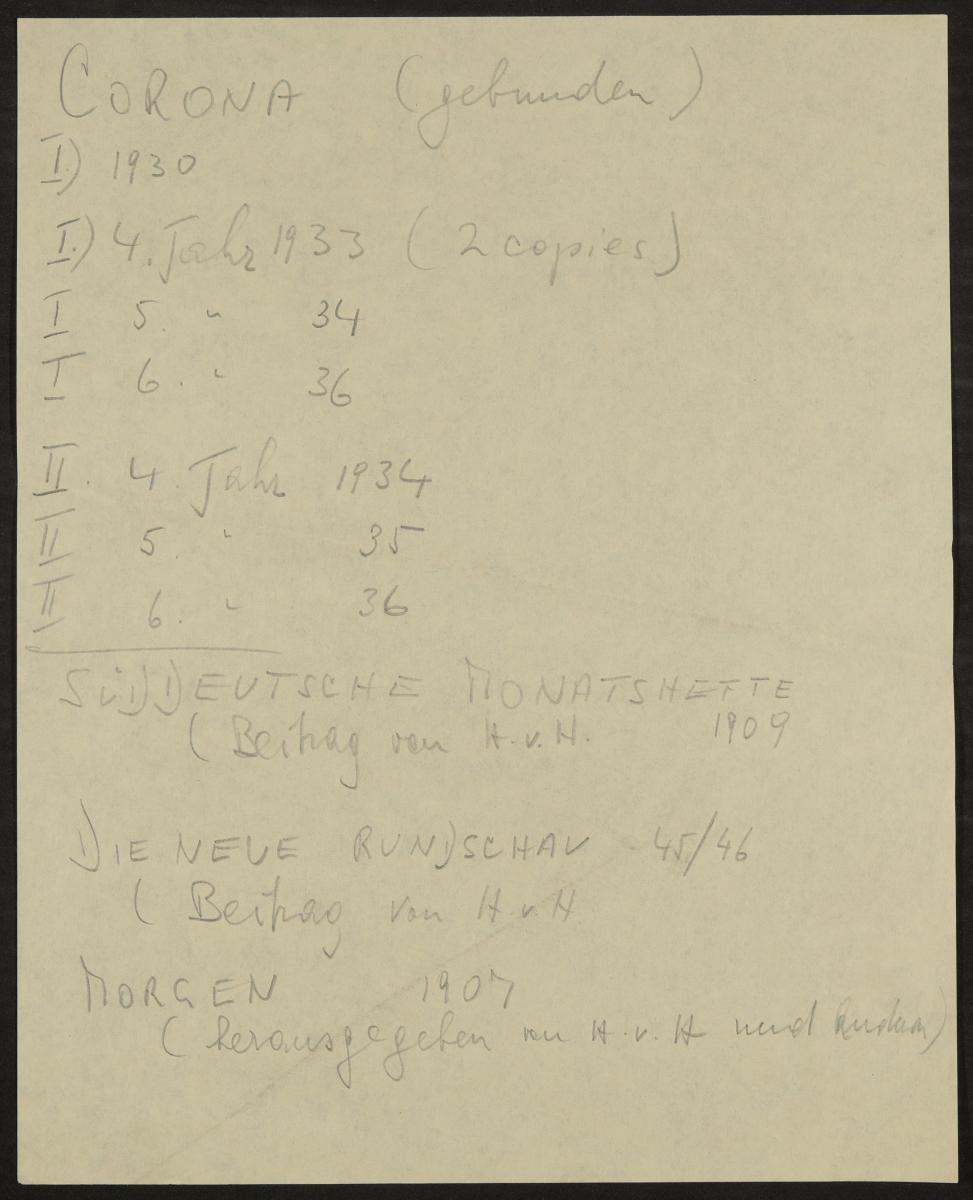 CORONA (gebunden)
I) 1930
I.) 4. Jahr 1933 (2 copies)
I 5. " 34
I 6. " 36
II. 4. Jahr 1934
II 5. " 35
II 6. " 36
SÜDDEUTSCHE MONATSHEFTE
(Beitrag von H.v.H. 1909
DIE NEUE RUNDSCHAU 45/46
(Beitrag von H.v.H
MORGEN 1907
(herausgegeben von H.v.H und Andern)